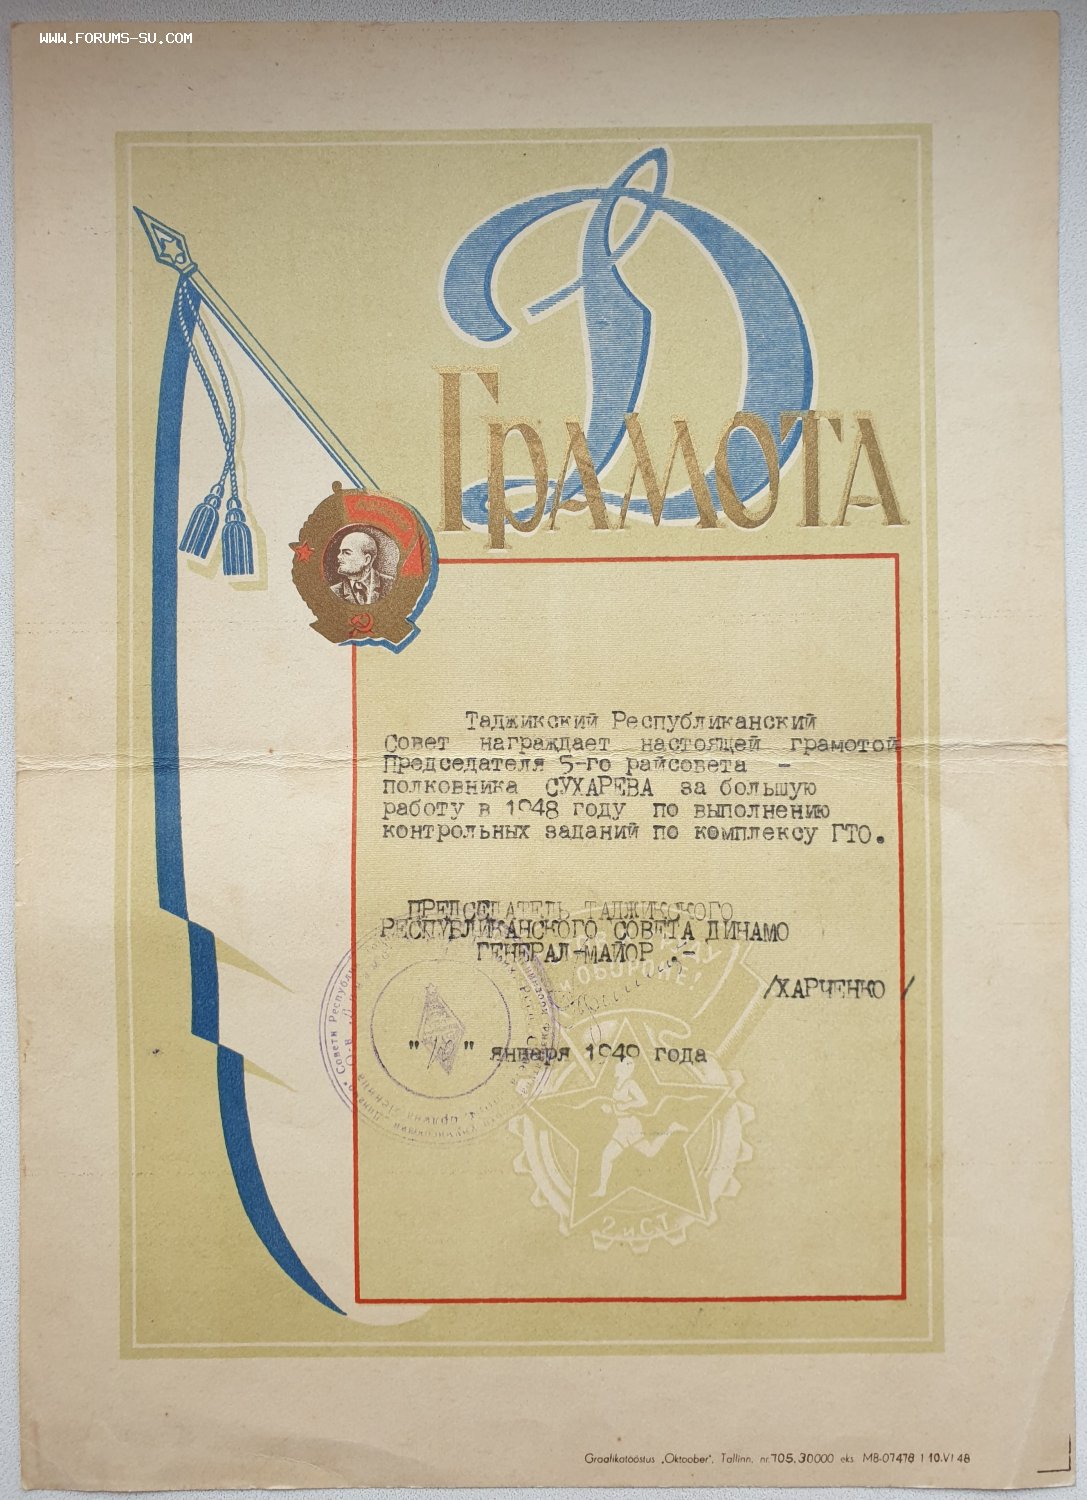 WWW.FORUMS-SU.COM
Д
ГРАМОТА
Таджикский Республиканский
Совет награждает настоящей грамотой
Председателя 5-го райсовета -
полковника СУХАРЕВА за большую
работу в 1948 году по выполнению
контрольных заданий по комплексу ГТО.
ПРЕДСЕДАТЕЛЬ ТАДЖИКСКОГО
РЕСПУБЛИКАНСКОГО СОВЕТА ДИНАМО
ГЕНЕРАЛ-МАЙОР .-
ОБОРОНЕ!
/ХАРЧЕНКО /
" 18 " января 1949 года
2 и СТ.
Graafikatööstus „Oktoober", Tallinn. nr. 705. 30000 eks. MB-07478 1 10.VI 48